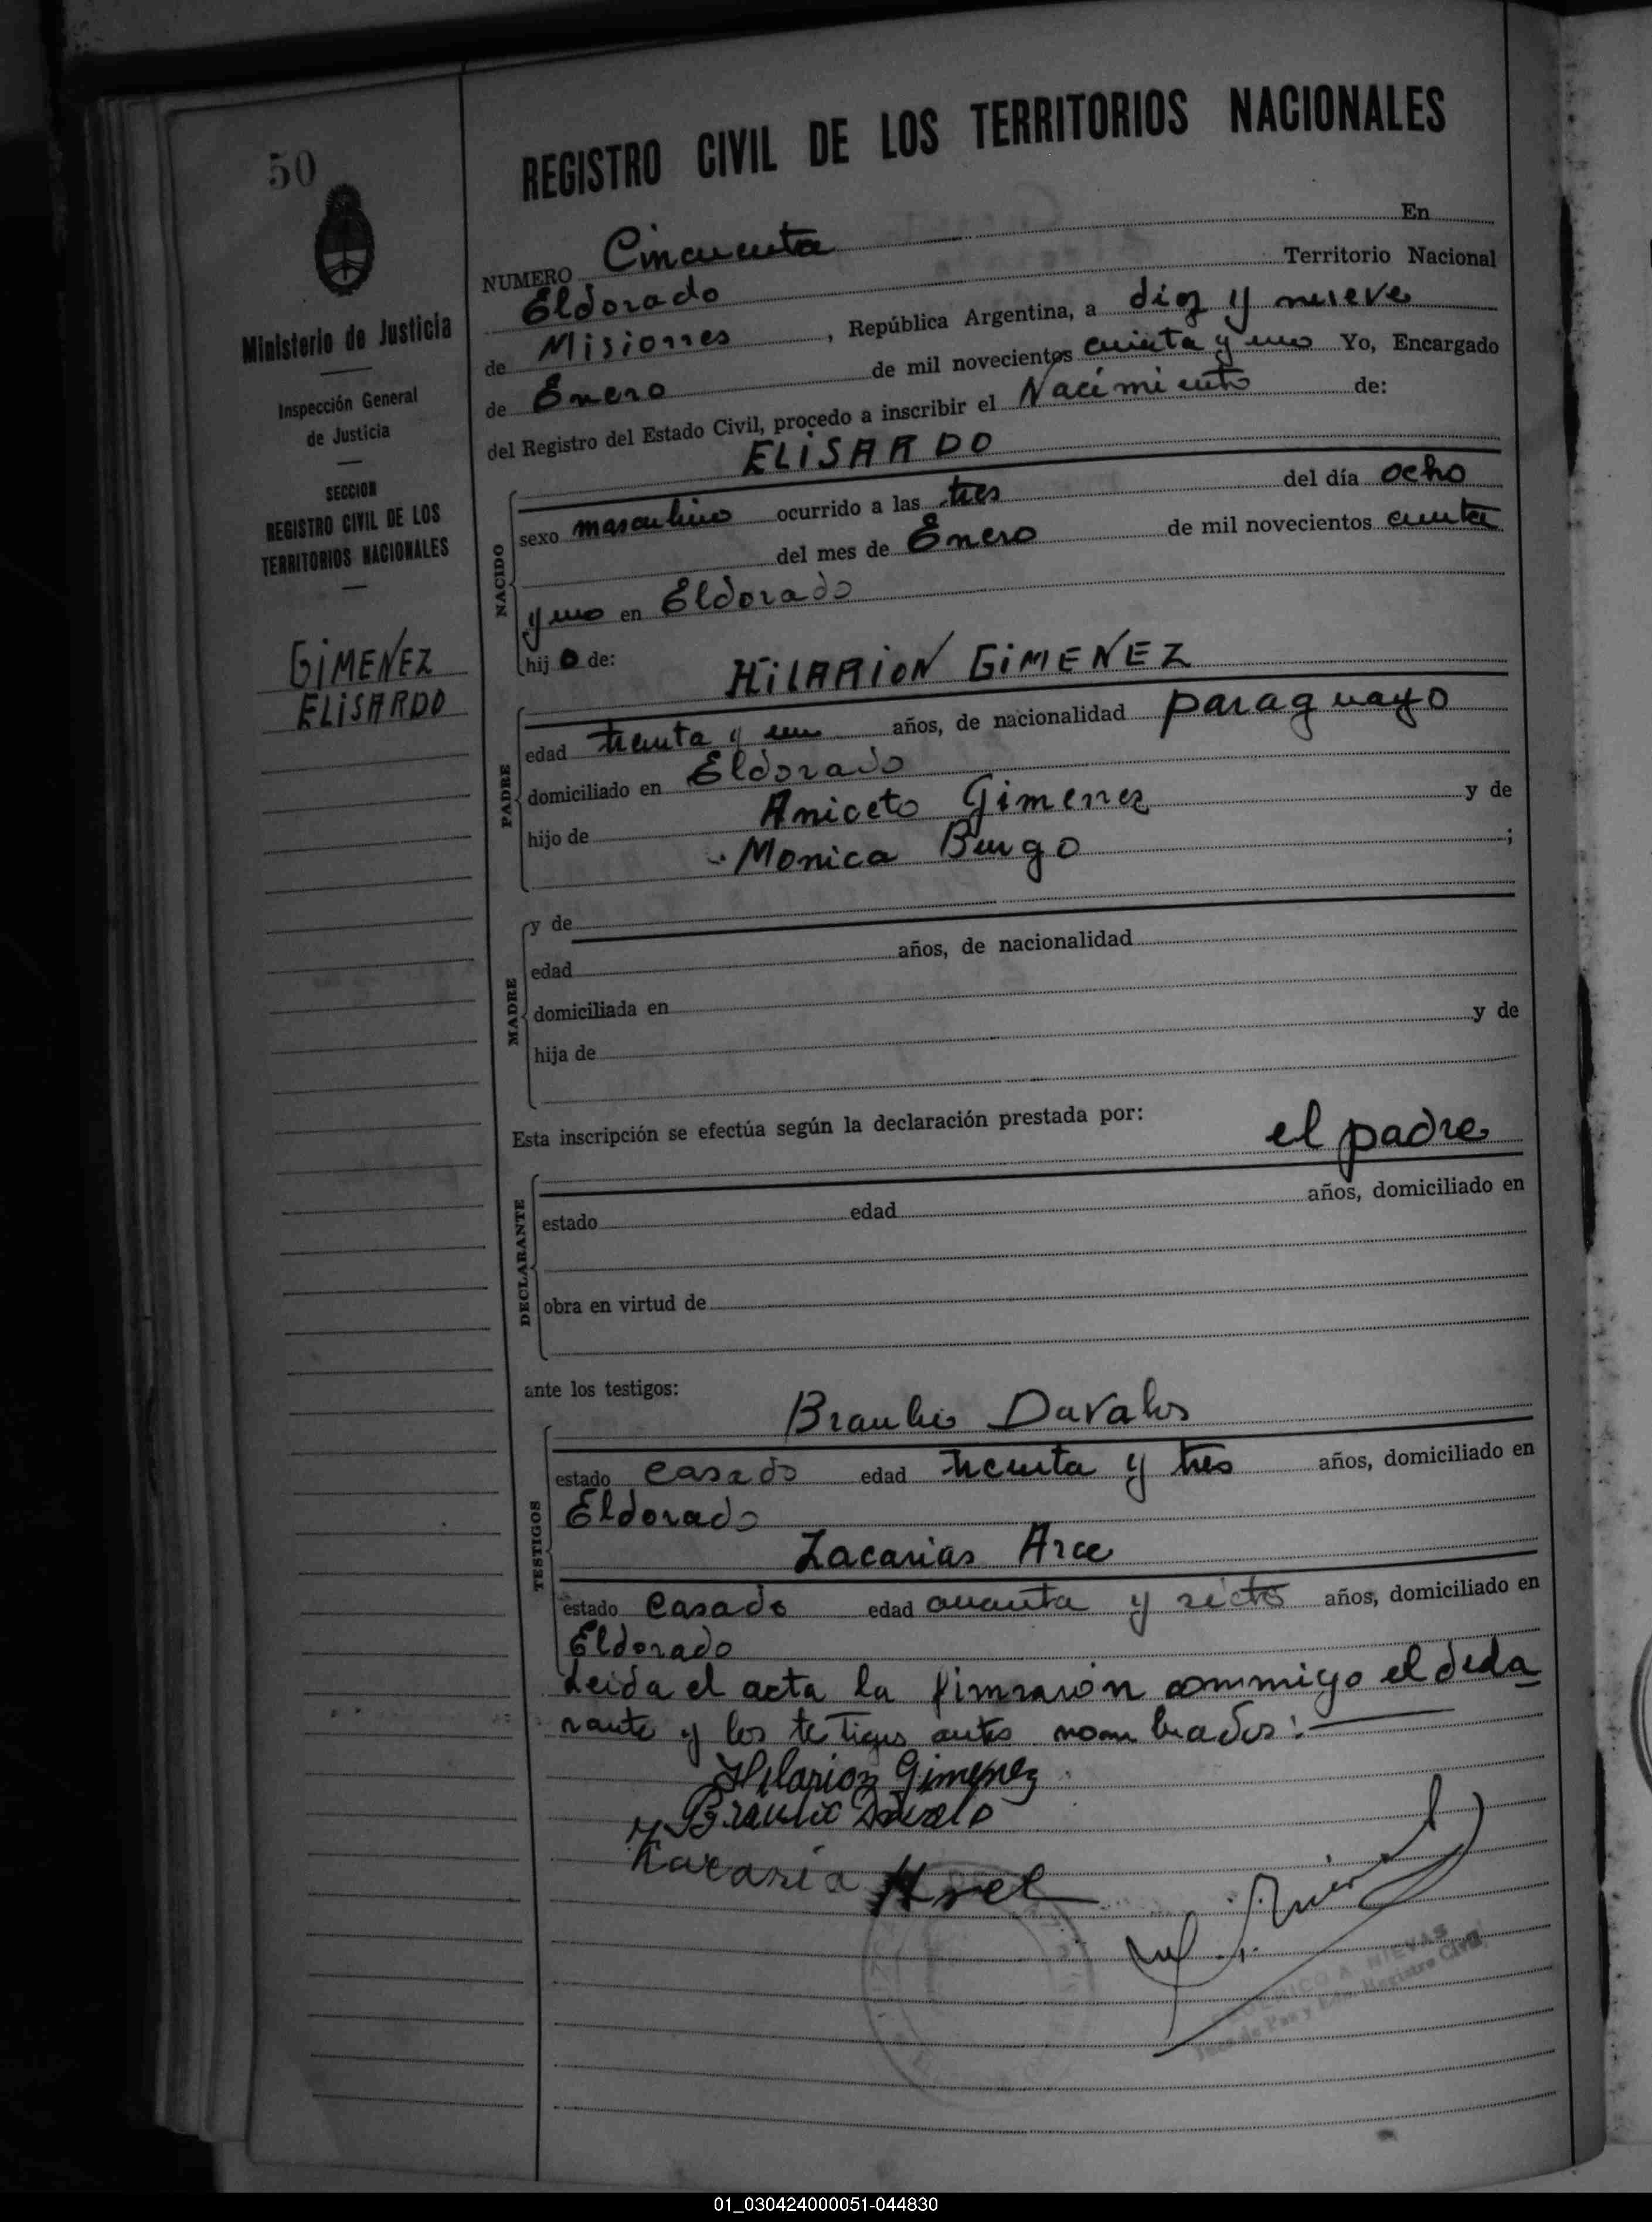 50
Ministerio de Justicia
Inspección General
de Justicia
SECCION
REGISTRO CIVIL DE LOS
TERRITORIOS NACIONALES
GiMENEZ
ELiSARDO
REGISTRO CIVIL DE LOS TERRITORIOS NACIONALES
NUMERO Cincuenta En
Eldorado Territorio Nacional
de Misiones, República Argentina, a diez y nueve
de Enero de mil novecientos cuenta y uno Yo, Encargado
del Registro del Estado Civil, procedo a inscribir el Nacimiento de:
ELiSARDO
NACIDO
sexo masculino ocurrido a las tres del día ocho
del mes de Enero de mil novecientos cuenta
y uno en Eldorado
hijo de:
HiLARION GiMENEZ
PADRE
edad treinta y un años, de nacionalidad paraguayo
domiciliado en Eldorado
hijo de Aniceto Gimenez y de
Monica Burgo;
MADRE
y de
edad años, de nacionalidad
domiciliada en
hija de y de
Esta inscripción se efectúa según la declaración prestada por:
el padre
DECLARANTE
estado edad años, domiciliado en
obra en virtud de
ante los testigos:
Braulio Davalos
TESTIGOS
estado casado edad treinta y tres años, domiciliado en
Eldorado
Zacarias Arce
estado casado edad cuarenta y siete años, domiciliado en
Eldorado
Leida el acta la firmaron conmigo el decla
rante y los testigos antes nombrados:
Hilarion Gimenez
Braulio Davalo
Zacaria
A. NIEVAS
Juez de Paz y Enc. Registro Civil
01_030424000051-044830